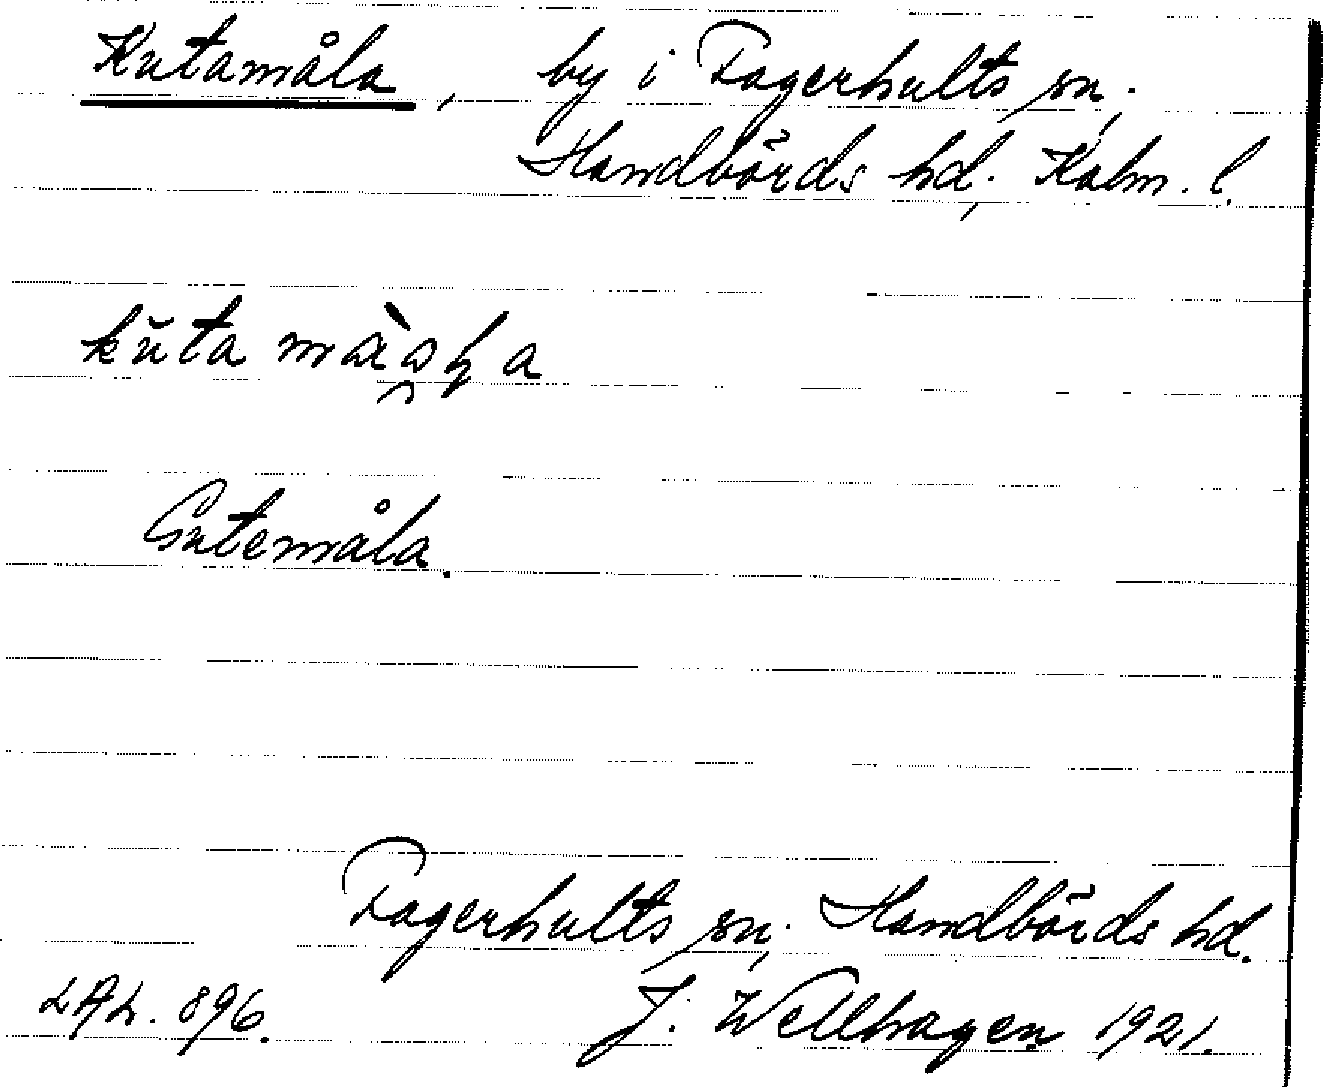 Kutamåla, by i Fagerhults sn,
Handbörds hd, Kalm. l.
Gutemåla.
Fagerhults sn, Handbörds hd.
LAL. 896.
J. Wellhagen 1921.